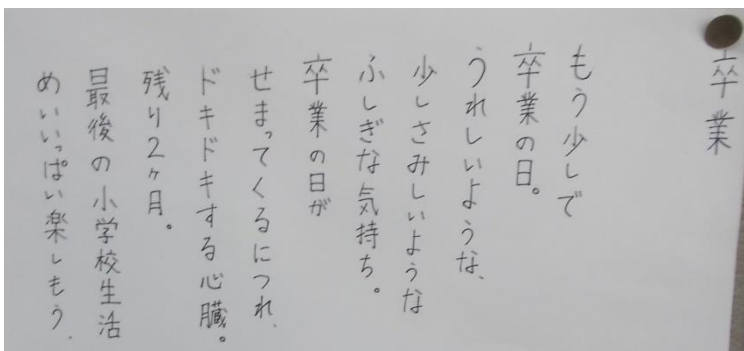 卒業
もう少しで
卒業の日。
うれしいような、
少しさみしいような
ふしぎな気持ち。
卒業の日が
せまってくるにつれ、
ドキドキする心臓。
残り2ヶ月。
最後の小学校生活
めいいっぱい楽しもう。